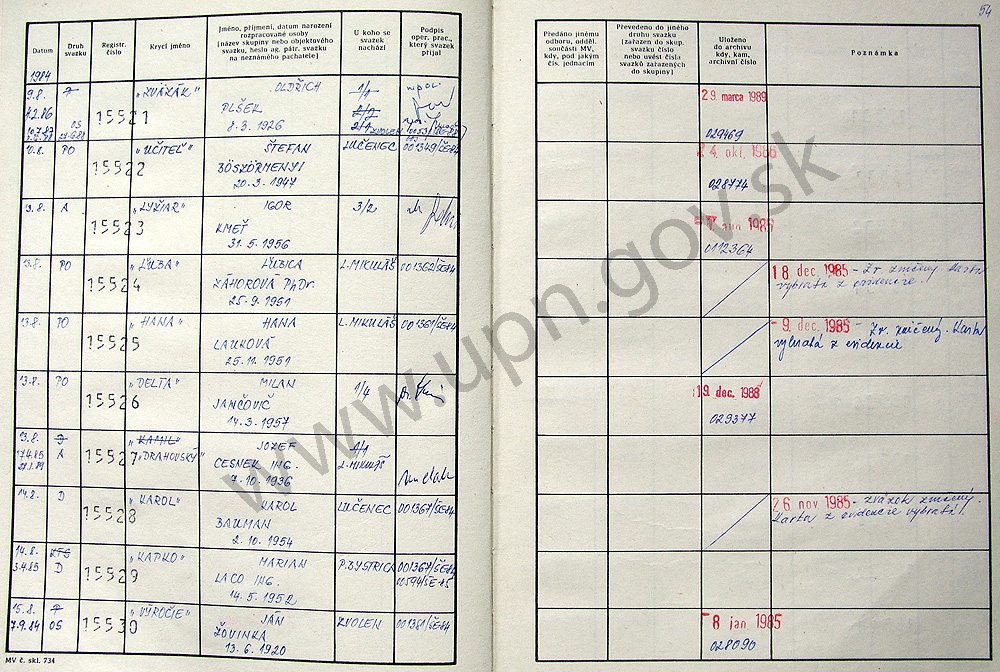 54
Datum
Druh svazku
Registr. číslo
Krycí jméno
Jméno, příjmení, datum narození
rozpracované osoby
[název skupiny nebo objektového
svazku, heslo ag. pátr. svazku
na neznámého pachatele]
U koho se
svazek
nachází
Podpis
oper. prac.,
který svazek
přijal
Předáno jinému
odboru, odděl.
součásti MV,
kdy, pod jakým
čís. jednacím
Převedeno do jiného
druhu svazku
[zařazen do skup.
svazku číslo
nebo uvést čísla
svazků zařazených
do skupiny]
Uloženo
do archivu
kdy, kam,
archivní číslo
Poznámka
1984
9.8. 15521 „ZVÁZÁK" OLDŘICH
4.2.86 OS PLŠEK
8.3.1926 ZVOLEN
29 marca 1989
029469
10.8. PO 15522 „UČITEĽ" ŠTEFAN LUČENEC 001349/ŠE-84
BÖSZÖRMENYI
20.3.1947
24 okt. 1986
028774
13.8. A 15523 „LYŽIAR" IGOR 3/2
KMEŤ
31.5.1956
1985
0112364
13.8. PO 15524 „ĽUBA" ĽUBICA L. MIKULÁŠ 001362/ŠE-84
ZÁHOROVÁ PhDr.
25.9.1951
18 dec. 1985 - Zv. zničený Karta
vybratá z evidencie!
13.8. PO 15525 „HANA" HANA L. MIKULÁŠ 001361/ŠE-84
LAUKOVÁ
25.11.1951
- 9. dec. 1985 - Zv. zničený. Karta
vybratá z evidencie
13.8. PO 15526 „DELTA" MILAN 1/4
JANČOVIČ
14.3.1957
19. dec. 1988
029377
13.8. 15527 „KAMIL" JOZEF 1/1
17.4.85 A „DRAHOVSKÝ" CESNEK ING. L. MIKULÁŠ
7.10.1936
14.8. D 15528 „KAROL" KAROL LUČENEC 001367/ŠE-84
BAUMAN
2.10.1954
26 nov. 1985 - zväzok zničený.
Karta z evidencie vybratá!
14.8. KTS 15529 „KAPKO" MARIAN P. BYSTRICA 001367/ŠE-84
3.4.85 D LACO ING.
14.5.1952
15.8. 15530 „VÝROČIE" JÁN ZVOLEN 001381/ŠE-84
7.9.84 OS ŽOVINKA
13.6.1920
- 8 jan. 1985
028090
MV č. skl. 734
www.upn.gov.sk